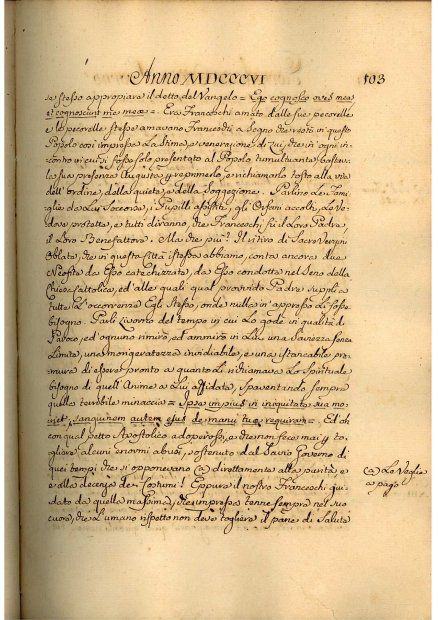 Anno MDCCCVI
103
se stesso appropiare il detto del Vangelo = Ego cognosco oves meas
et cognoscunt me meæ = Era Franceschi amato dalle sue pecorelle
e le pecorelle stesse amavano Franceschi a segno che restò in questo
Popolo così impressa la stima, e venerazione di Lui, che in ogni in-
contro in cui si fosse solo presentato al Popolo tumultuante bastava
la sua presenza per reprimerlo, e richiamarlo tosto alla via
dell'ordine, della quiete, e della soggezione. Parlino le Fami-
glie da Lui soccorse, i Pupilli assistiti, gli Orfani accolti, le Ve-
dove protette, e tutti diranno, che Franceschi fù il Loro Padre,
il Loro Benefattore. Ma che più? Il ritiro di Sacre Vergini
Oblate, che in questa Città istessa abbiamo, conta ancora due
Neofite da Esso catechizzate, da Esso condotte nel Seno della
Chiesa Cattolica, ed alle quali qual provvido Padre supplì a
tutte le occorrenze Egli stesso, onde nulla in appresso le fosse
bisogno. Parli Livorno del tempo in cui lo godè in qualità di
Paroco, ed ognuno rimirò, ed ammirò in Lui una Saviezza senza
Limite, una invidiabile, e una instancabile pre-
mura di esser pronto a quanto lo richiamava lo Spirituale
bisogno di quell'Anime a Lui affidate, spaventando sempre
quella terribile minaccia = Ipse impius in iniquitate sua mo-
rietur, sanguinem autem ejus de manu tua requiram = Ed oh
con qual petto Apostolico adoperossi, e che non fece mai per to-
gliere alcuni enormi abusi, sostenuto dal Savio Governo di
quei tempi che si opponevano (a) direttamente alla purità, e
e alla decenza de' Costumi! Eppure il nostro Franceschi gui-
dato da quella massima, che impressa tenne sempre nel suo
cuore, che l'umano rispetto non deve togliere il pane di Salute
(a) Le Veglie
a pago